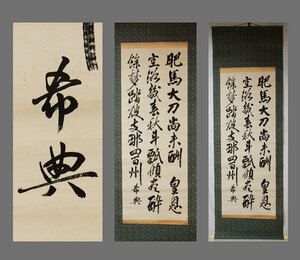 希典
肥馬大刀尚未酬 皇恩
空浴幾春秋斗瓢傾尽醉
餘夢踏破支那四百州 希典
肥馬大刀尚未酬 皇恩
空浴幾春秋斗瓢傾尽醉
餘夢踏破支那四百州 希典